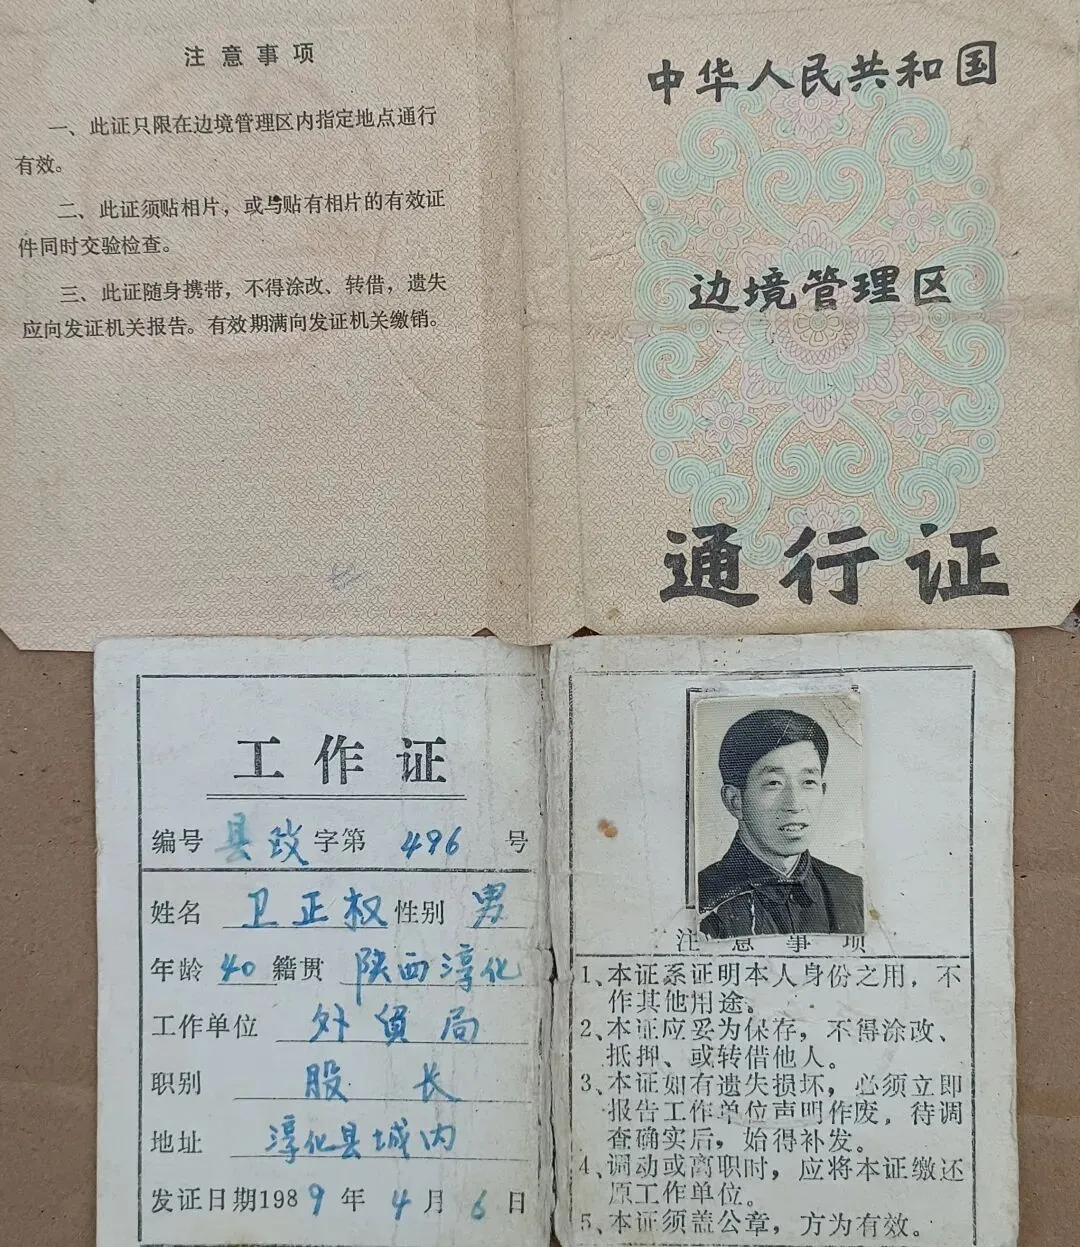 注意事项
一、此证只限在边境管理区内指定地点通行
有效。
二、此证须贴相片，或与贴有相片的有效证
件同时交验检查。
三、此证随身携带，不得涂改、转借，遗失
应向发证机关报告。有效期满向发证机关缴销。
中华人民共和国
边境管理区
通行证
工作证
编号 县政 字第 496 号
姓名 卫正权 性别 男
年龄 40 籍贯 陕西淳化
工作单位 外贸局
职别 股长
地址 淳化县城内
发证日期1989年4月6日
注意事项
1、本证系证明本人身份之用，不
作其他用途。
2、本证应妥为保存，不得涂改、
抵押、或转借他人。
3、本证如有遗失损坏，必须立即
报告工作单位声明作废，待调
查确实后，始得补发。
4、调动或离职时，应将本证缴还
原工作单位。
5、本证须盖公章，方为有效。